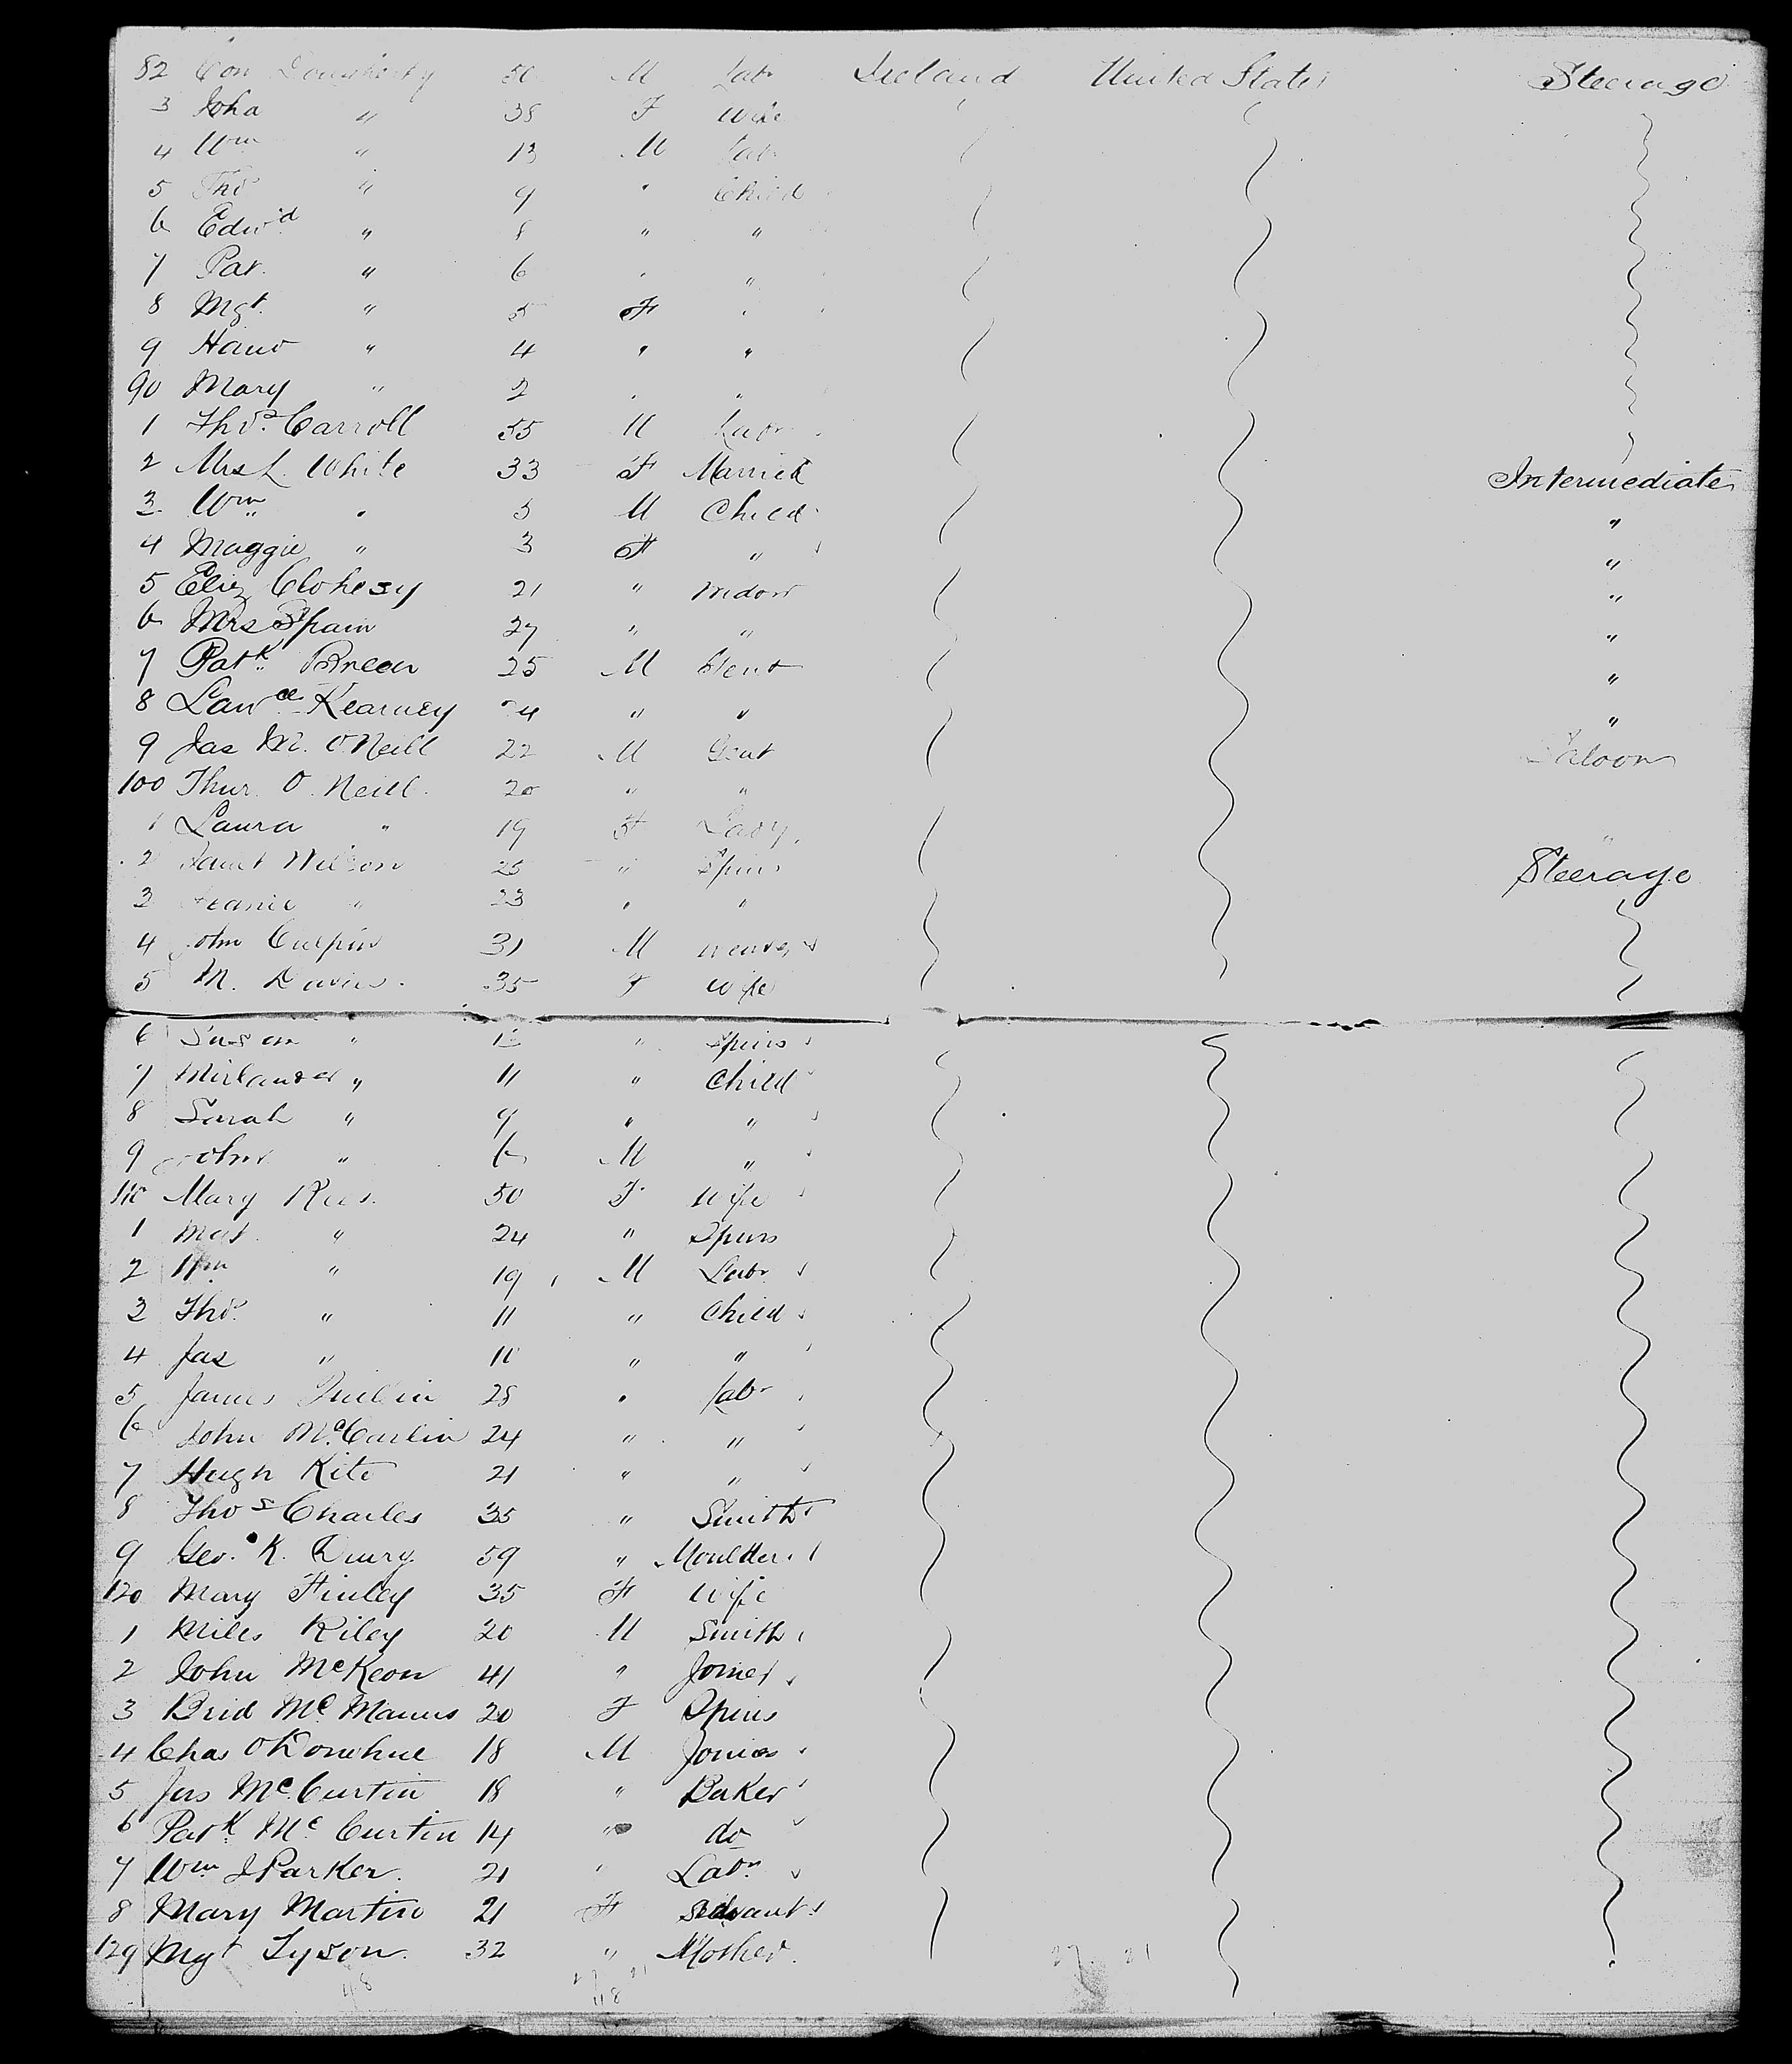 82 Con Dougherty 50 M Labr Ireland United States Steerage
3 Joha " 38 F Wife
4 Wm " 13 M Labr
5 Thos " 9 " Child
6 Edwd " 8 " "
7 Pat. " 6 " "
8 Mgt. " 5 F "
9 Hano " 4 " "
90 Mary " 2 " "
1 Thos. Carroll 35 M Labr
2 Mrs L. White 33 F Married Intermediate
3 Wm " 5 M Child "
4 Maggie " 3 F " "
5 Eliz Clohesy 21 " Widow "
6 Mrs Spain 27 " " "
7 Patk Breen 25 M Gent "
8 Lawce Kearney 24 " " "
9 Jas M. O'Neill 22 M Gent Saloon
100 Thur. O. Neill. 20 " "
1 Laura " 19 F Lady "
2 Janet Wilson 25 " Spins Steerage
3 Jeanie " 23 " "
4 John Culpin 31 M Weaver
5 M. Davies. 35 F Wife
6 Susan " " Spins
7 " 11 " Child
8 Sarah " 9 " "
9 John " 6 M "
110 Mary Rees. 50 F Wife
1 Mgt. " 24 " Spins
2 Wm " 19 M Labr
3 Thos. " 11 " Child
4 Jas " 10 " "
5 James 28 " Labr
6 John McCarlin 24 " "
7 Hugh Kite 21 " "
8 Thos Charles 35 " Smith
9 Geo. K. Drury. 59 " Moulder
120 Mary Finley 35 F Wife
1 Miles Riley 20 M Smith
2 John McKeon 41 " Joiner
3 Brid McManus 20 F Spins
4 Chas O'Donohue 18 M Joiner
5 Jas McCurtin 18 " Baker
6 Patk McCurtin 14 " do
7 Wm J Parker. 21 " Labr
8 Mary Martin 21 F Servant
129 Mgt Tyson. 32 " Mother.
27 21
48 48